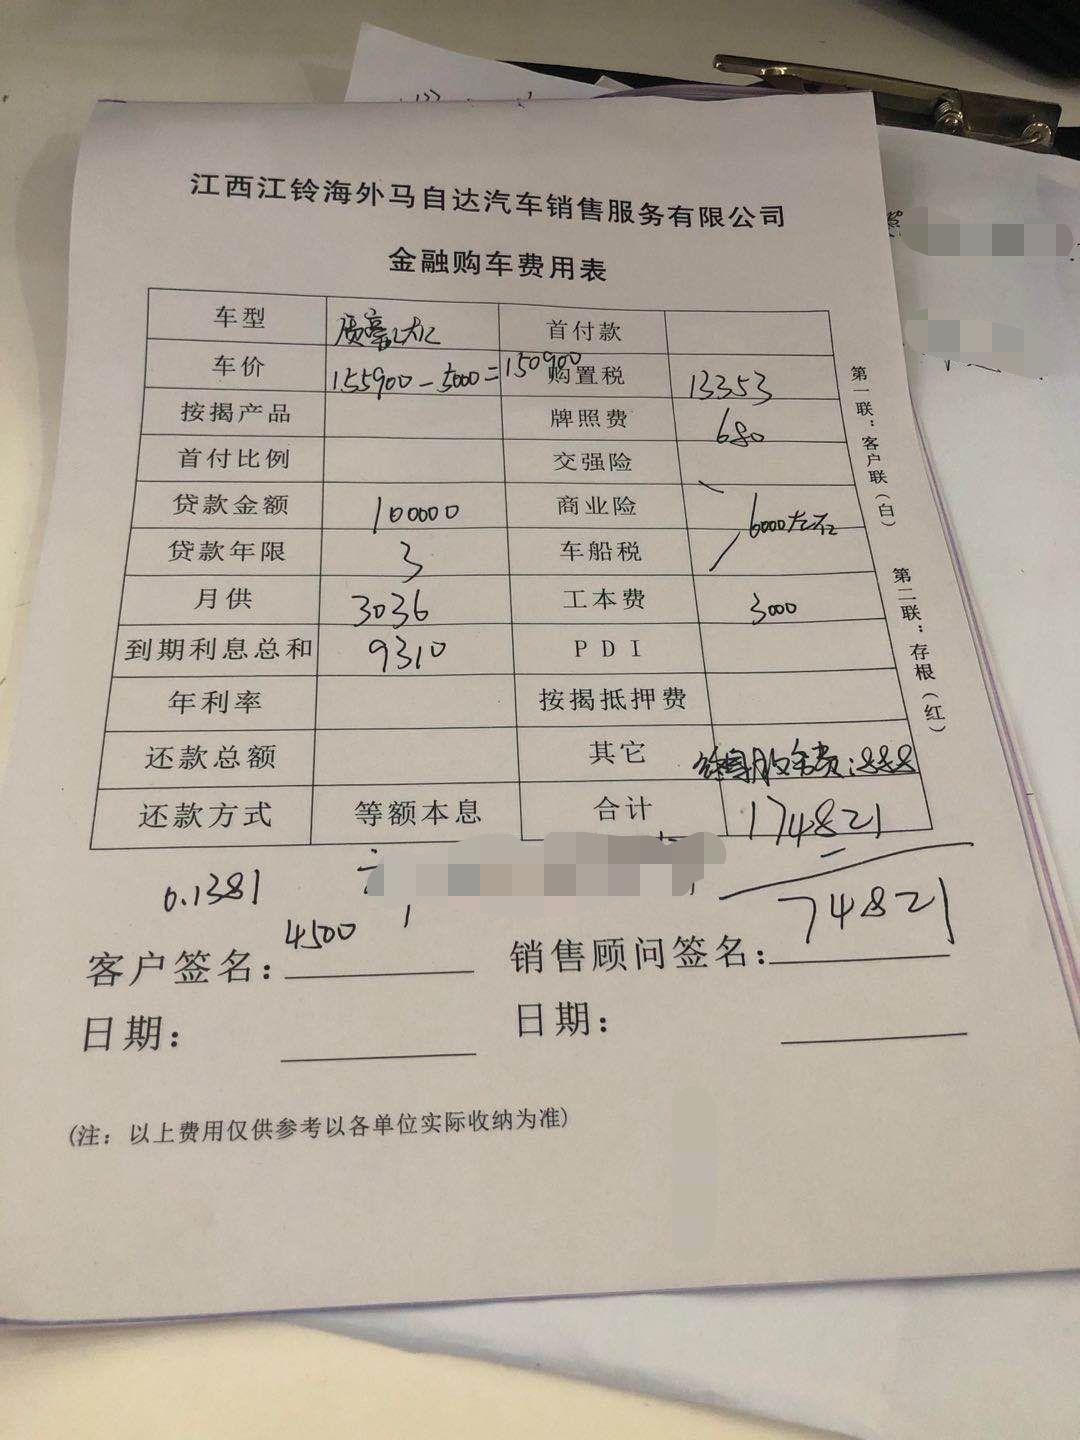 江西江铃海外马自达汽车销售服务有限公司
金融购车费用表
车型 首付款
车价 155900-5000=150900 购置税 13353
按揭产品 牌照费 680
首付比例 交强险
贷款金额 100000 商业险 6000左右
贷款年限 3 车船税
月供 3036 工本费 3000
到期利息总和 9310 PDI
年利率 按揭抵押费
还款总额 其它 服务费:888
还款方式 等额本息 合计 174821
第一联：客户联(白)
第二联：存根(红)
0.1381
74821
4500
客户签名： 销售顾问签名：
日期： 日期：
(注：以上费用仅供参考以各单位实际收纳为准)